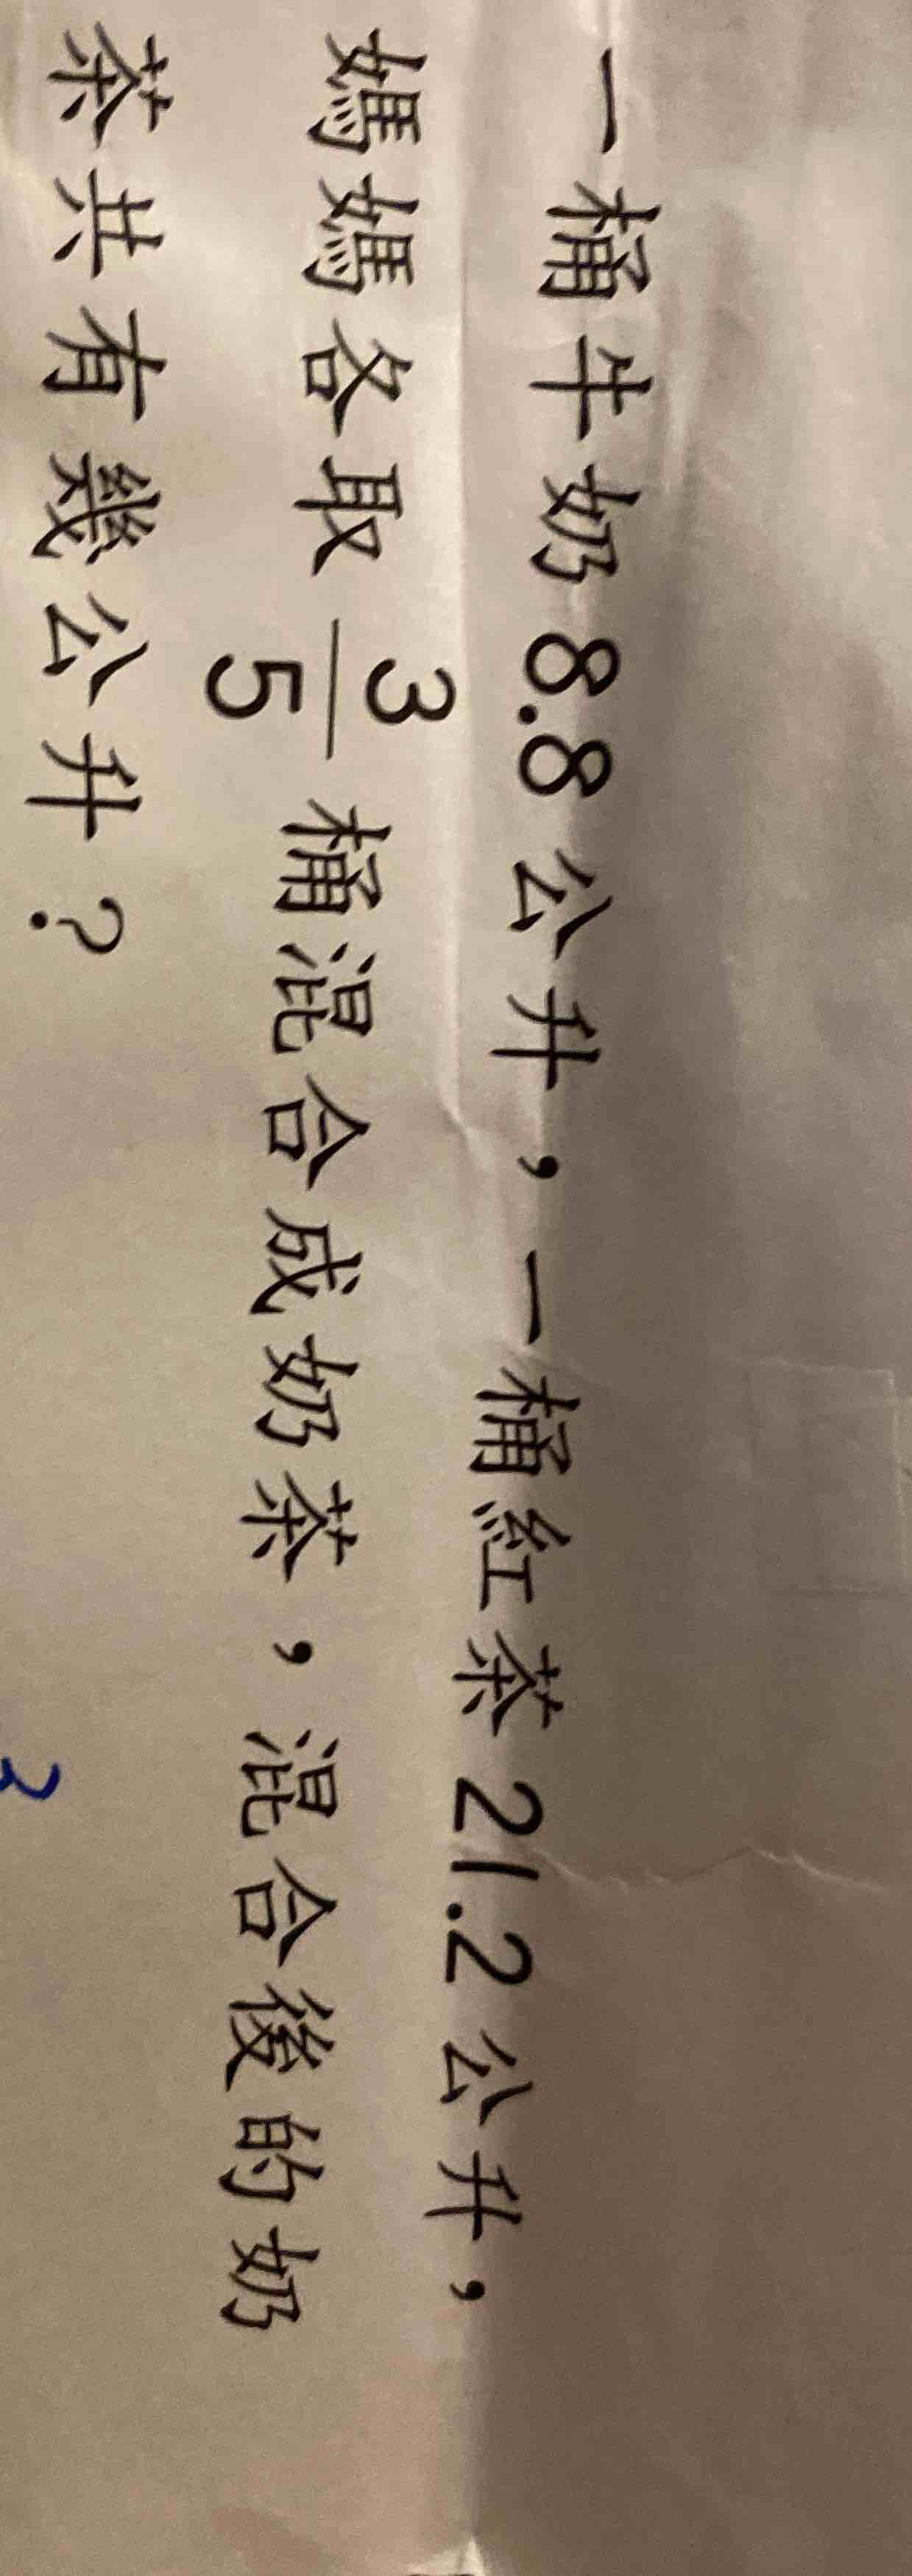 一桶牛奶 8.8 公升，一桶紅茶 21.2 公升，
媽媽各取 3/5 桶混合成奶茶，混合後的奶
茶共有幾公升？